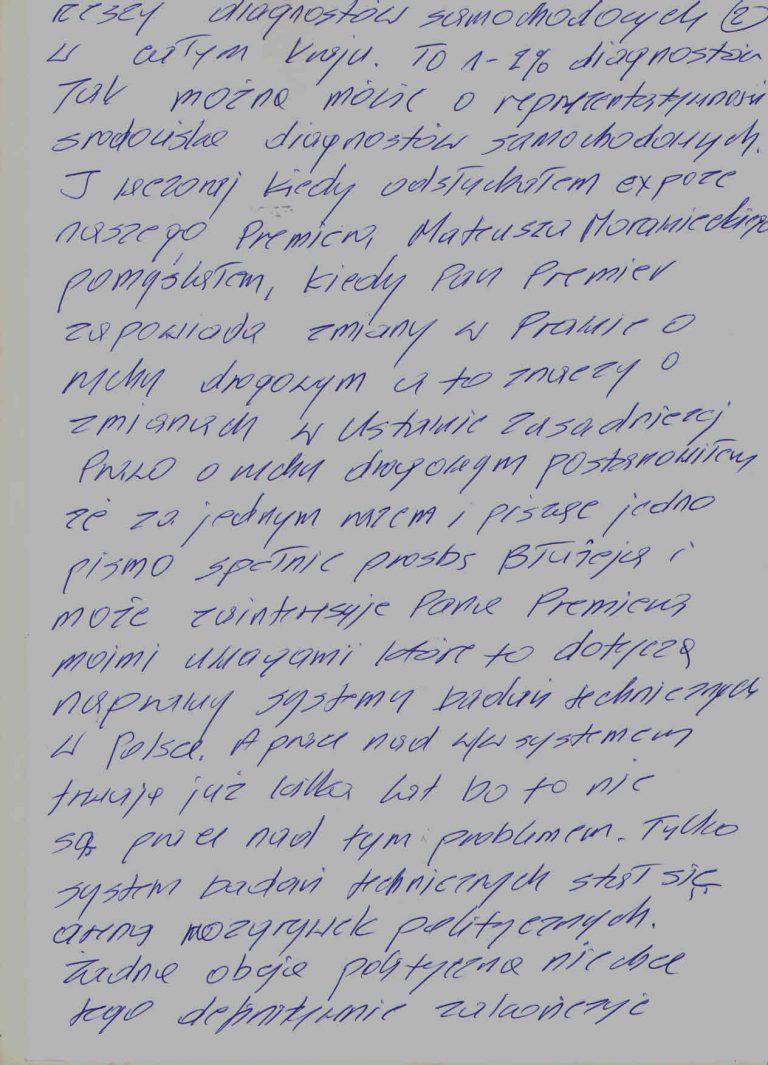 rzeszy diagnostów samochodowych (2)
w całym kraju. To 1-2% diagnostów
Tak można mówić o reprezentatywności
środowiska diagnostów samochodowych.
I wczoraj kiedy odsłuchałem expoze
naszego Premiera, Mateusza Morawieckiego
pomyślałem, kiedy Pan Premier
zapowiada zmiany w Prawie o
ruchu drogowym a to znaczy o
zmianach w Ustawie Zasadniczej
Prawo o ruchu drogowym postanowiłem
że za jednym razem i pisząc jedno
pismo spełnić prośbę Błażeja i
może zainteresuje Pana Premiera
moimi uwagami które to dotyczą
naprawy systemu badań technicznych
w Polsce. A prace nad w/w systemem
trwają już kilka lat bo to nie
są prace nad tym problemem. Tylko
system badań technicznych stał się
areną rozgrywek politycznych.
Żadna opcja polityczna nie chce
tego definitywnie zakończyć